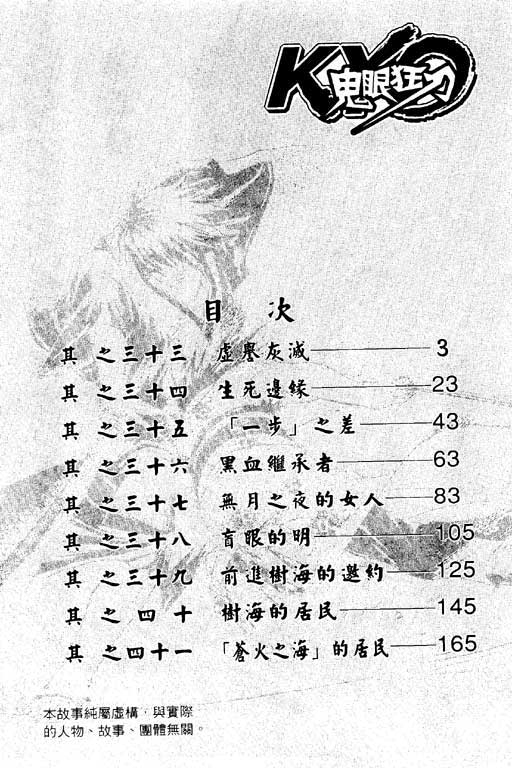 KYO
鬼眼狂刀
目 次
其之三十三 虛譽灰滅 3
其之三十四 生死邊緣 23
其之三十五 「一步」之差 43
其之三十六 黑血繼承者 63
其之三十七 無月之夜的女人 83
其之三十八 盲眼的明 105
其之三十九 前進樹海的邀約 125
其之四十 樹海的居民 145
其之四十一 「蒼火之海」的居民 165
本故事純屬虛構，與實際
的人物、故事、團體無關。